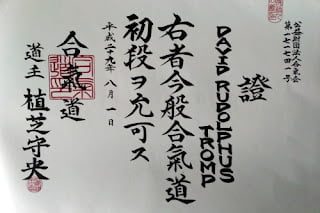 公益財団法人合気会
第一七一七四一号
證
DAVID RUDOLPHUS
TROMP
右者今般合氣道
初段ヲ允可ス
平成二十九年八月一日
合氣道
道主 植芝守央